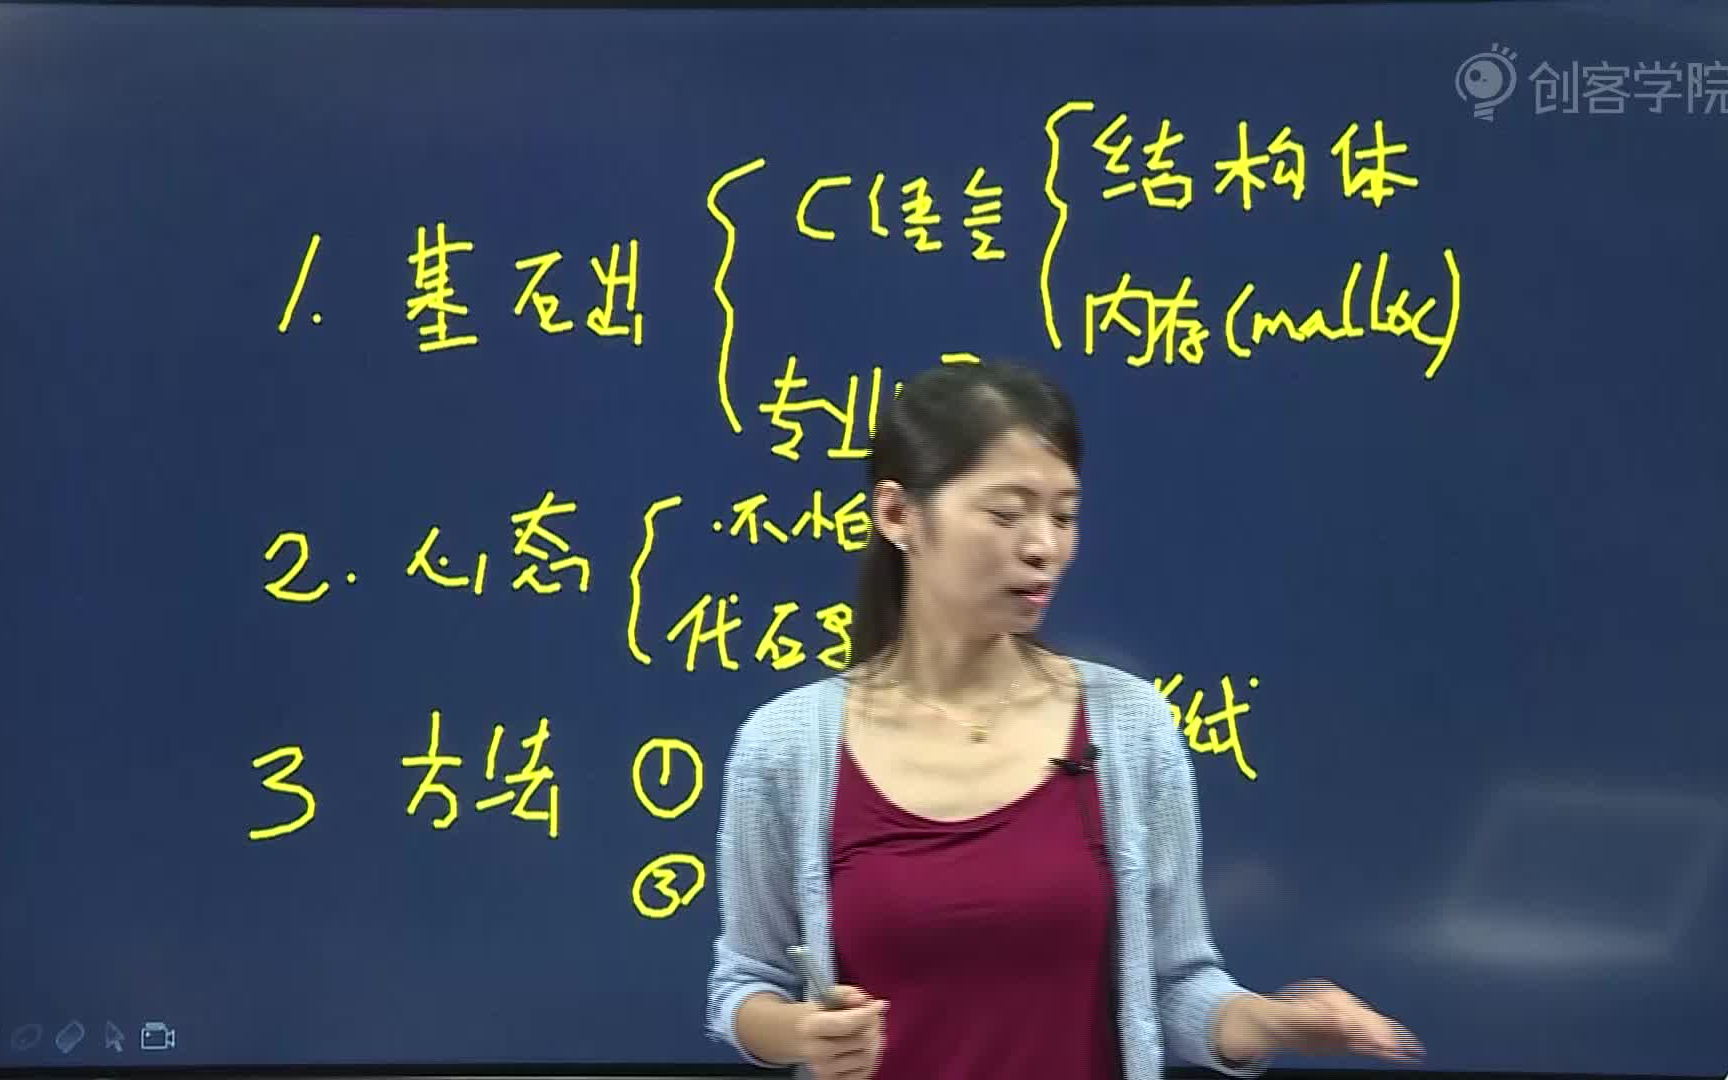 创客学院
结构体
C语言
1. 基础
内存(malloc)
专业
2. 心态
·不怕
代码
3 方法 ①
试
③